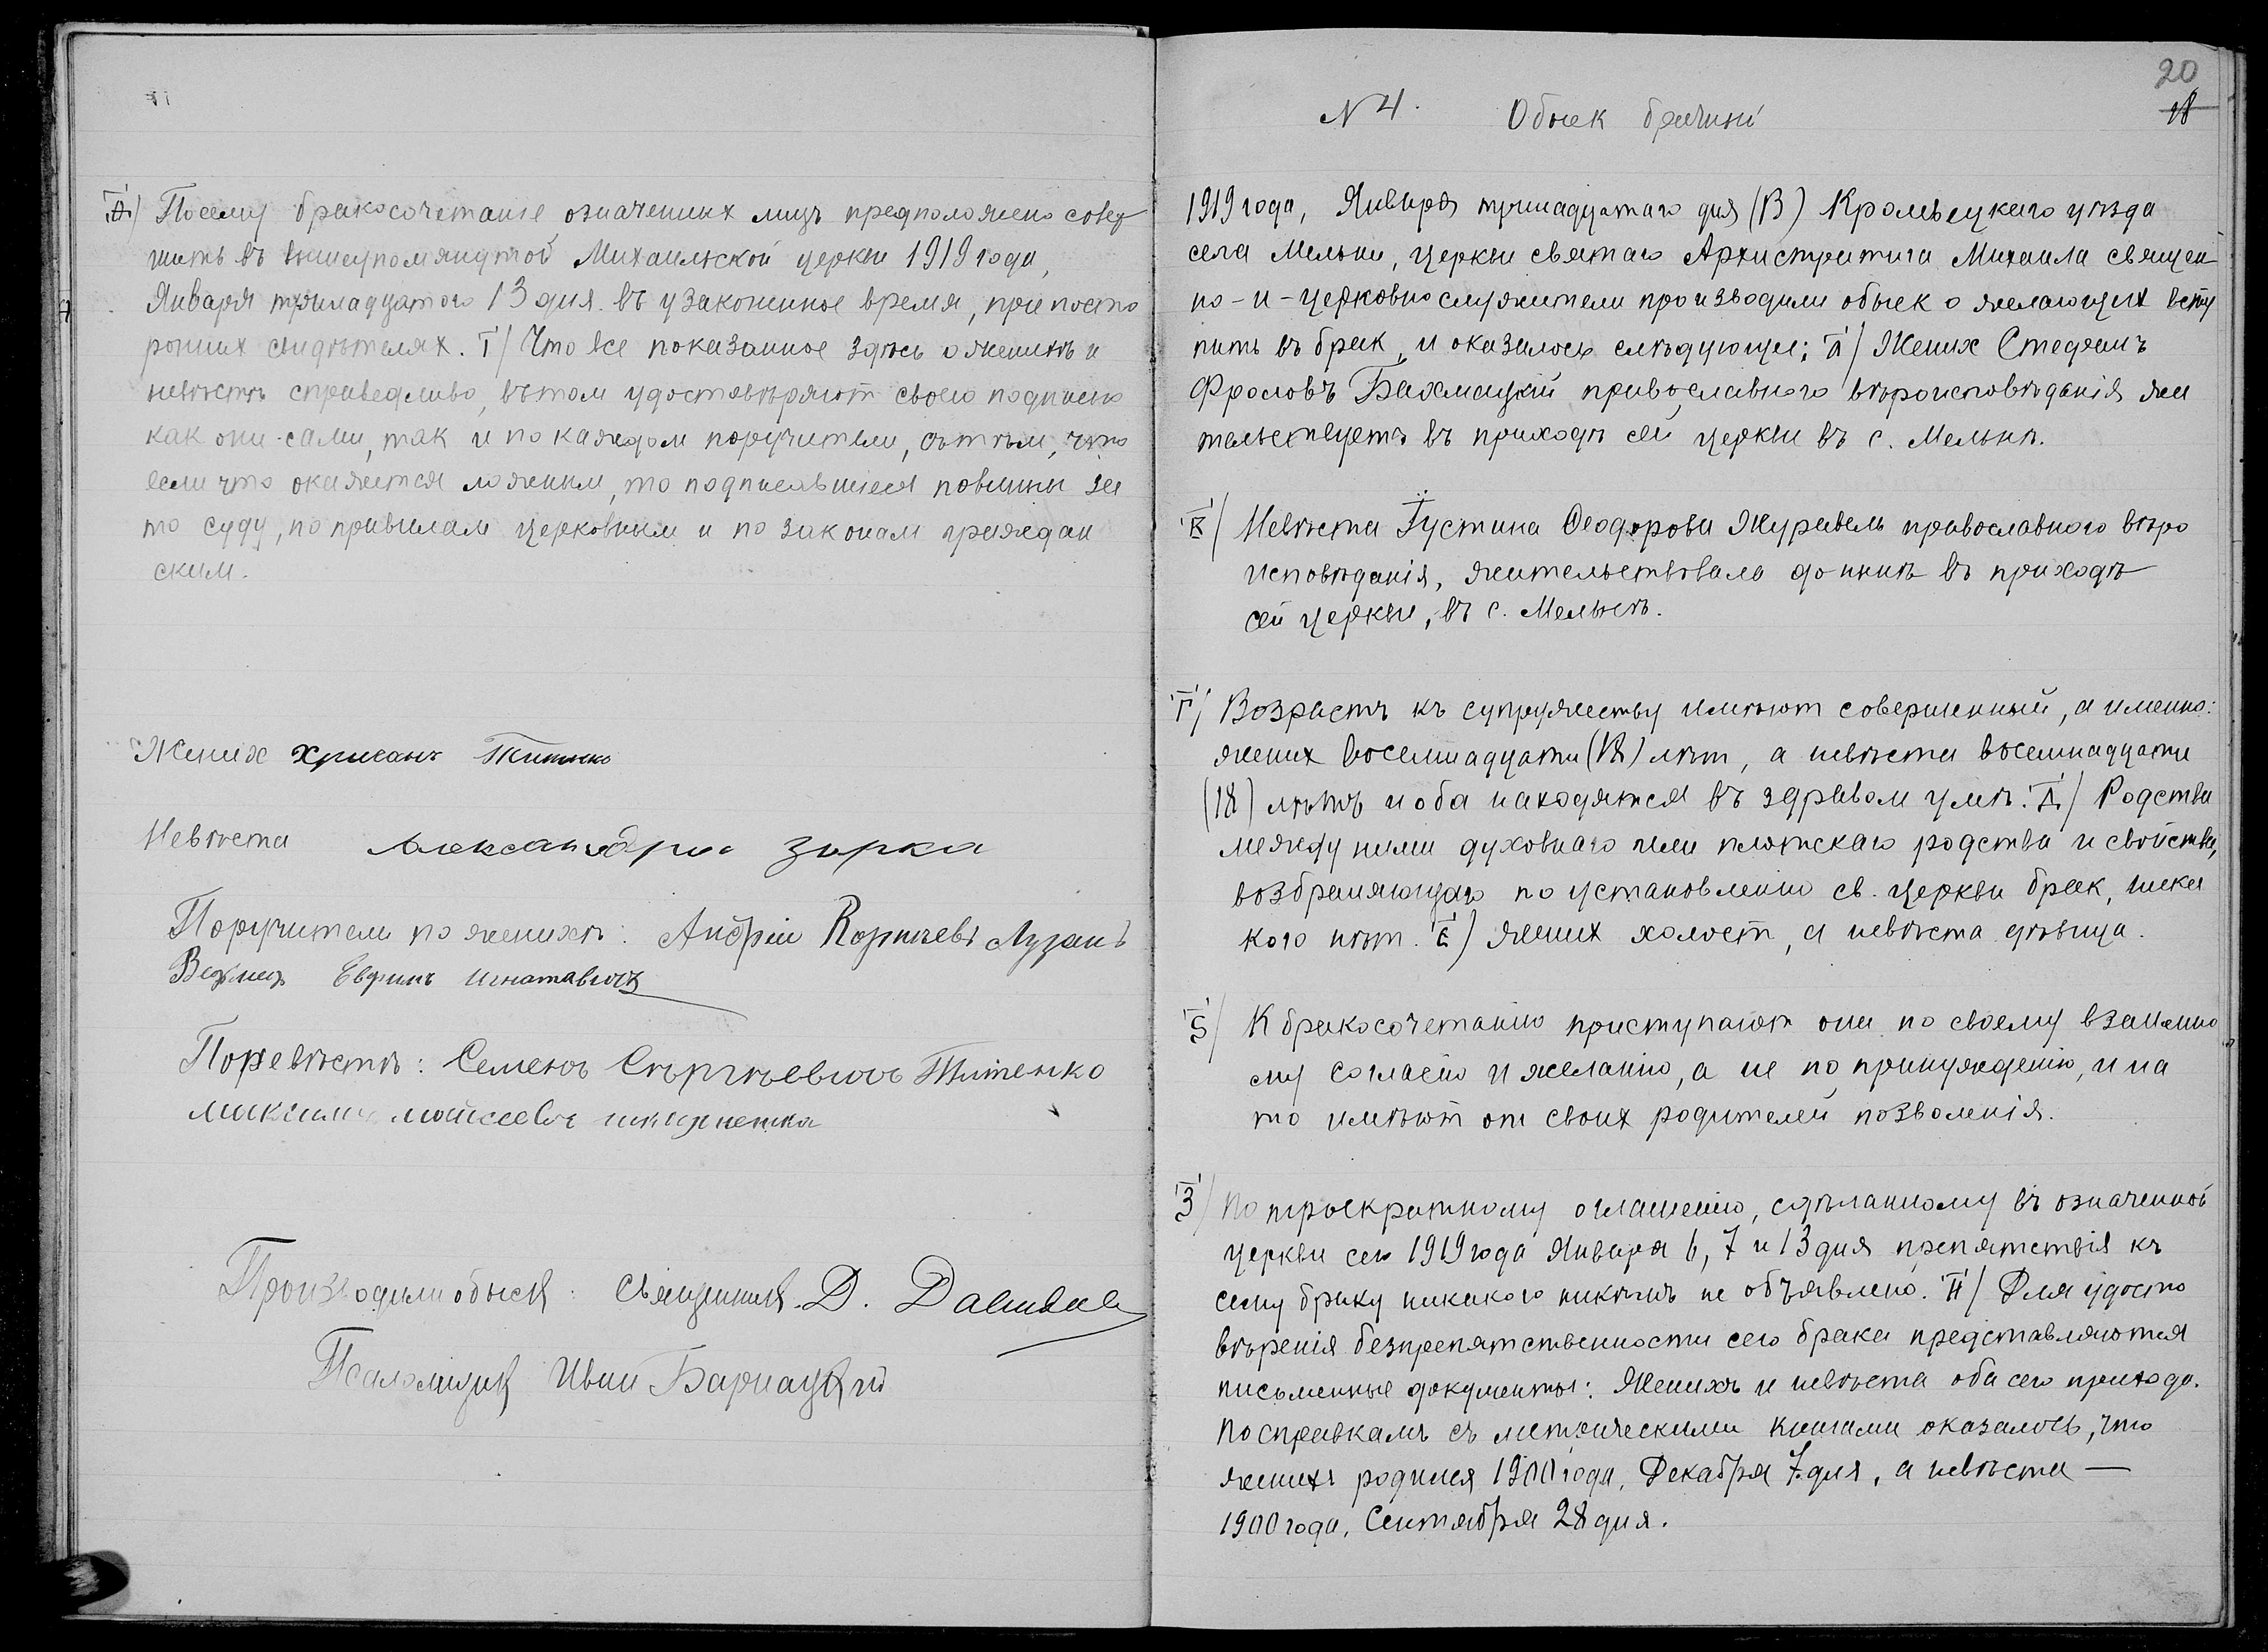 Ѳ) Посему бракосочетаніе означенных лицъ предположено совер
шить въ вышеупомянутой Михаильской церкви 1919 года,
Января тринадцатого 13 дня въ узаконенное время, при посто
ронних свидѣтелях. І) Что все показанное здѣсь о женихѣ и
невѣстѣ справедливо, въ том удостовѣряют своею подписью
как они сами, так и по каждом поручители, съ тѣм, что
если что окажется ложным, то подписавшиеся повинны за
то суду, по правилам церковным и по законам граждан
ским.
Жених Хрисанъ Титенко
Невѣста Александра Зорка
Поручители по женихѣ: Андрій Лузанъ
Евфимъ Игнатавичъ
По невѣстѣ: Семенъ Сѣргѣевичъ Титенко
Максимъ Мойсеевъ
Производили обыскъ: Священникъ Д.
Псаломщик Иван Барнацкий
20
18
N 4. Обыск брачный
1919 года, Января тринадцатаго дня (13) Кролевецкаго уѣзда
села Мельни, церкви святаго Архистратига Михаила священ
но-и-церковнослужители производили обыск о желающих всту
пить въ брак, и оказалось слѣдующее; А) Жених Стефанъ
Фроловъ Бахмацкій православного вѣроисповѣданія жи
тельствуетъ въ приходѣ сей церкви въ с. Мельнѣ.
В) Невѣста Іустина Феодорова Журавель православного вѣро
исповѣданія, жительствовала до ннѣ въ приходѣ
сей церкви, въ с. Мельнѣ.
Г) Возрастъ къ супружеству имѣют совершенный, а именно:
жених восемнадцати (18) лѣт, а невѣста восемнадцати
(18) лѣтъ и оба находятся въ здравом умѣ. Д) Родства
между ними духовнаго или плотскаго родства и свойства,
возбраняющаго по установлению св. церкви брак, ника
кого нѣт. Е) жених холост, а невѣста дѣвица.
Ѕ) К бракосочетанію приступают они по своему взаимно
му согласію и желанію, а не по принужденію, и на
то имѣют от своих родителей позволенія.
З) По троекратному оглашенію, сдѣланному въ означенной
церкви сего 1919 года Января 6, 7 и 13 дня препятствія къ
сему браку никакого никѣмъ не объявлено. И) Для удосто
вѣренія безпрепятственности сего брака представляются
письменные документы: Женихъ и невѣста оба сего прихода.
По справкамъ съ метрическими книгами оказалось, что
женихъ родился 1900 года, Декабря 7 дня, а невѣста —
1900 года, Сентября 28 дня.